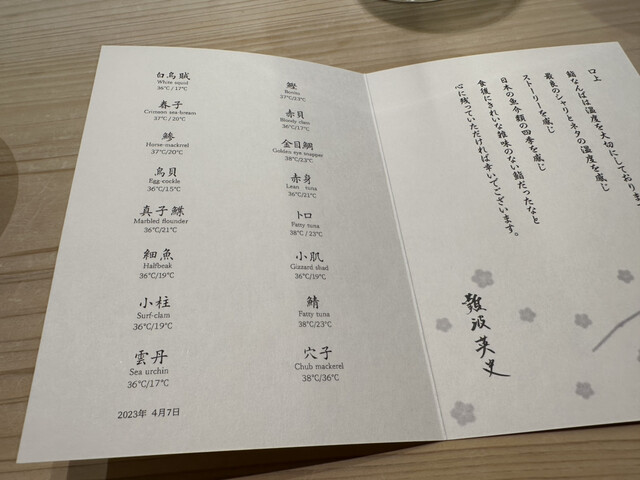 白烏賊
White squid
36℃/17℃
春子
Crimson sea-bream
37℃/20℃
鯵
Horse-mackrel
37℃/20℃
鳥貝
Egg-cockle
36℃/15℃
真子鰈
Marbled flounder
36℃/21℃
細魚
Halfbeak
36℃/19℃
小柱
Surf-clam
36℃/19℃
雲丹
Sea urchin
36℃/17℃
鰹
Bonito
37℃/23℃
赤貝
Bloody clam
36℃/17℃
金目鯛
Golden eye snapper
38℃/23℃
赤身
Lean tuna
36℃/21℃
トロ
Fatty tuna
38℃/23℃
小肌
Gizzard shad
36℃/19℃
鯖
Fatty tuna
38℃/23℃
穴子
Chub mackerel
38℃/36℃
2023年 4月7日
口上
鮨なんばは温度を大切にしております
最良のシャリとネタの温度を感じ
ストーリーを感じ
日本の魚介類の四季を感じ
食後にきれいな雑味のない鮨だったなと
心に残っていただければ幸いでございます。
難波英史